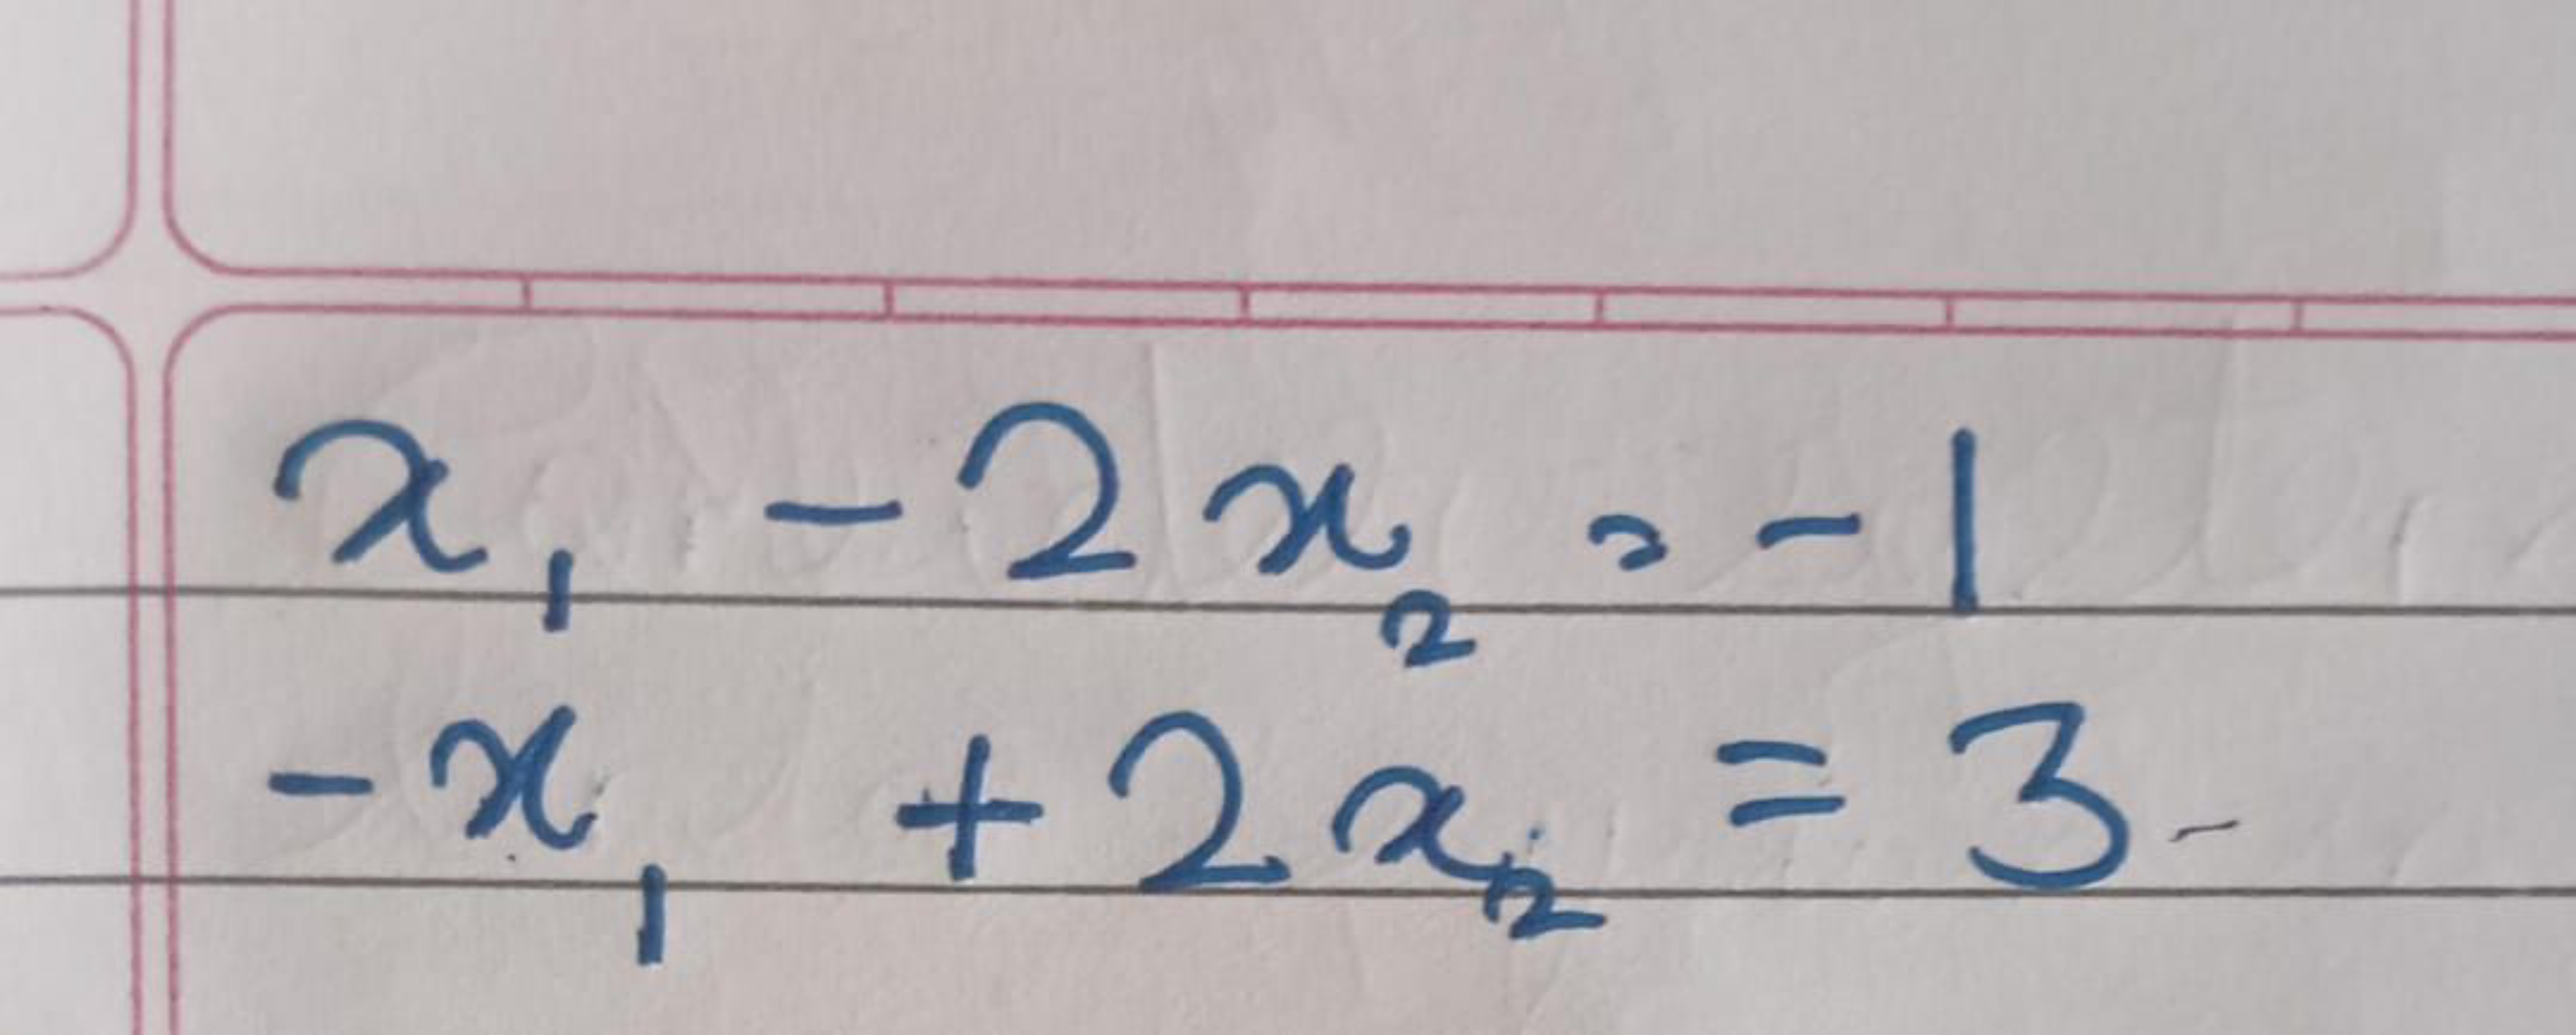 x₁ - 2x₂ = -1
-x₁ + 2x₂ = 3